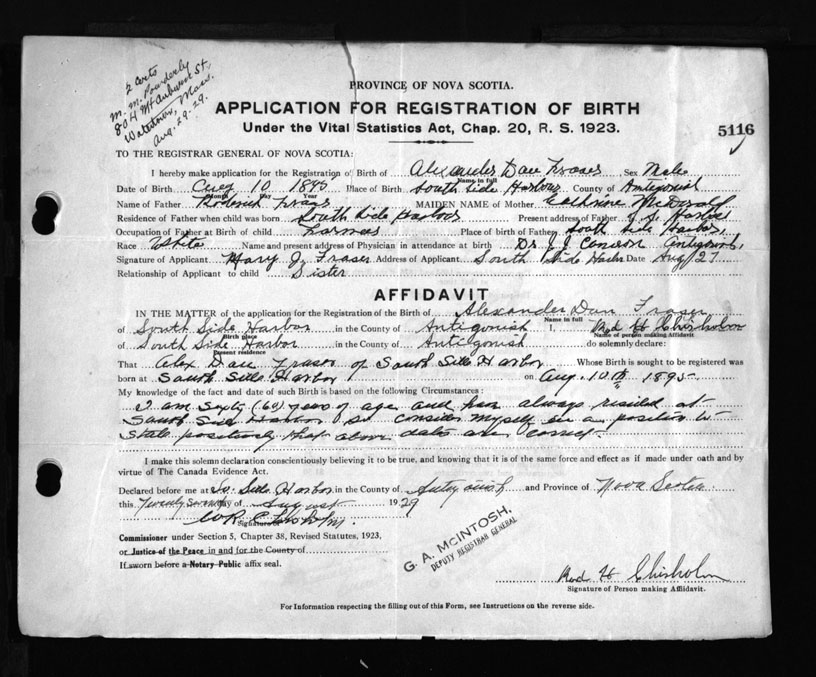 2 Certs
M. M. Powderly
804 Mt Auburn St.
Watertown, Mass.
Aug. 29-29.
PROVINCE OF NOVA SCOTIA.
APPLICATION FOR REGISTRATION OF BIRTH
Under the Vital Statistics Act, Chap. 20, R. S. 1923.
5116
TO THE REGISTRAR GENERAL OF NOVA SCOTIA:
I hereby make application for the Registration of Birth of Alexander Dan Fraser Sex Male
Name in full
Date of Birth Aug 10 1895 Place of Birth South Side Harbour County of Antigonish
Month Day Year
Name of Father Roderick Fraser MAIDEN NAME of Mother Catherine McDonald
Residence of Father when child was born South Side Harbor Present address of Father S. S. Harbor
Occupation of Father at Birth of child Farmer Place of birth of Father South Side Harbor,
Race White Name and present address of Physician in attendance at birth Dr J. J. Cameron Antigonish,
Signature of Applicant Mary J. Fraser Address of Applicant South Side Harbor Date Aug 27
Relationship of Applicant to child Sister
AFFIDAVIT
IN THE MATTER of the application for the Registration of the Birth of Alexander Dan Fraser
Name in full
of South Side Harbor in the County of Antigonish I, Rod H Chisholm
Birth place Name of person making Affidavit
of South Side Harbor in the County of Antigonish do solemnly declare:
Present residence
That Alex Dan Fraser of South Side Harbor Whose Birth is sought to be registered was
born at South Side Harbor on Aug. 10th 1895
My knowledge of the fact and date of such Birth is based on the following Circumstances:
I am Sixty (60) years of age and have always resided at
South Side Harbor so consider myself in a position to
state positively that above dates are correct.
I make this solemn declaration conscientiously believing it to be true, and knowing that it is of the same force and effect as if made under oath and by
virtue of The Canada Evidence Act.
Declared before me at So. Side Harbor in the County of Antigonish and Province of Nova Scotia
this Twenty Seventh day of August 1929
W R Chisholm
Signature
Commissioner under Section 5, Chapter 38, Revised Statutes, 1923,
or Justice of the Peace in and for the County of
If sworn before a Notary Public affix seal.
G. A. McINTOSH,
DEPUTY REGISTRAR GENERAL
Rod H Chisholm
Signature of Person making Affidavit.
For Information respecting the filling out of this Form, see Instructions on the reverse side.